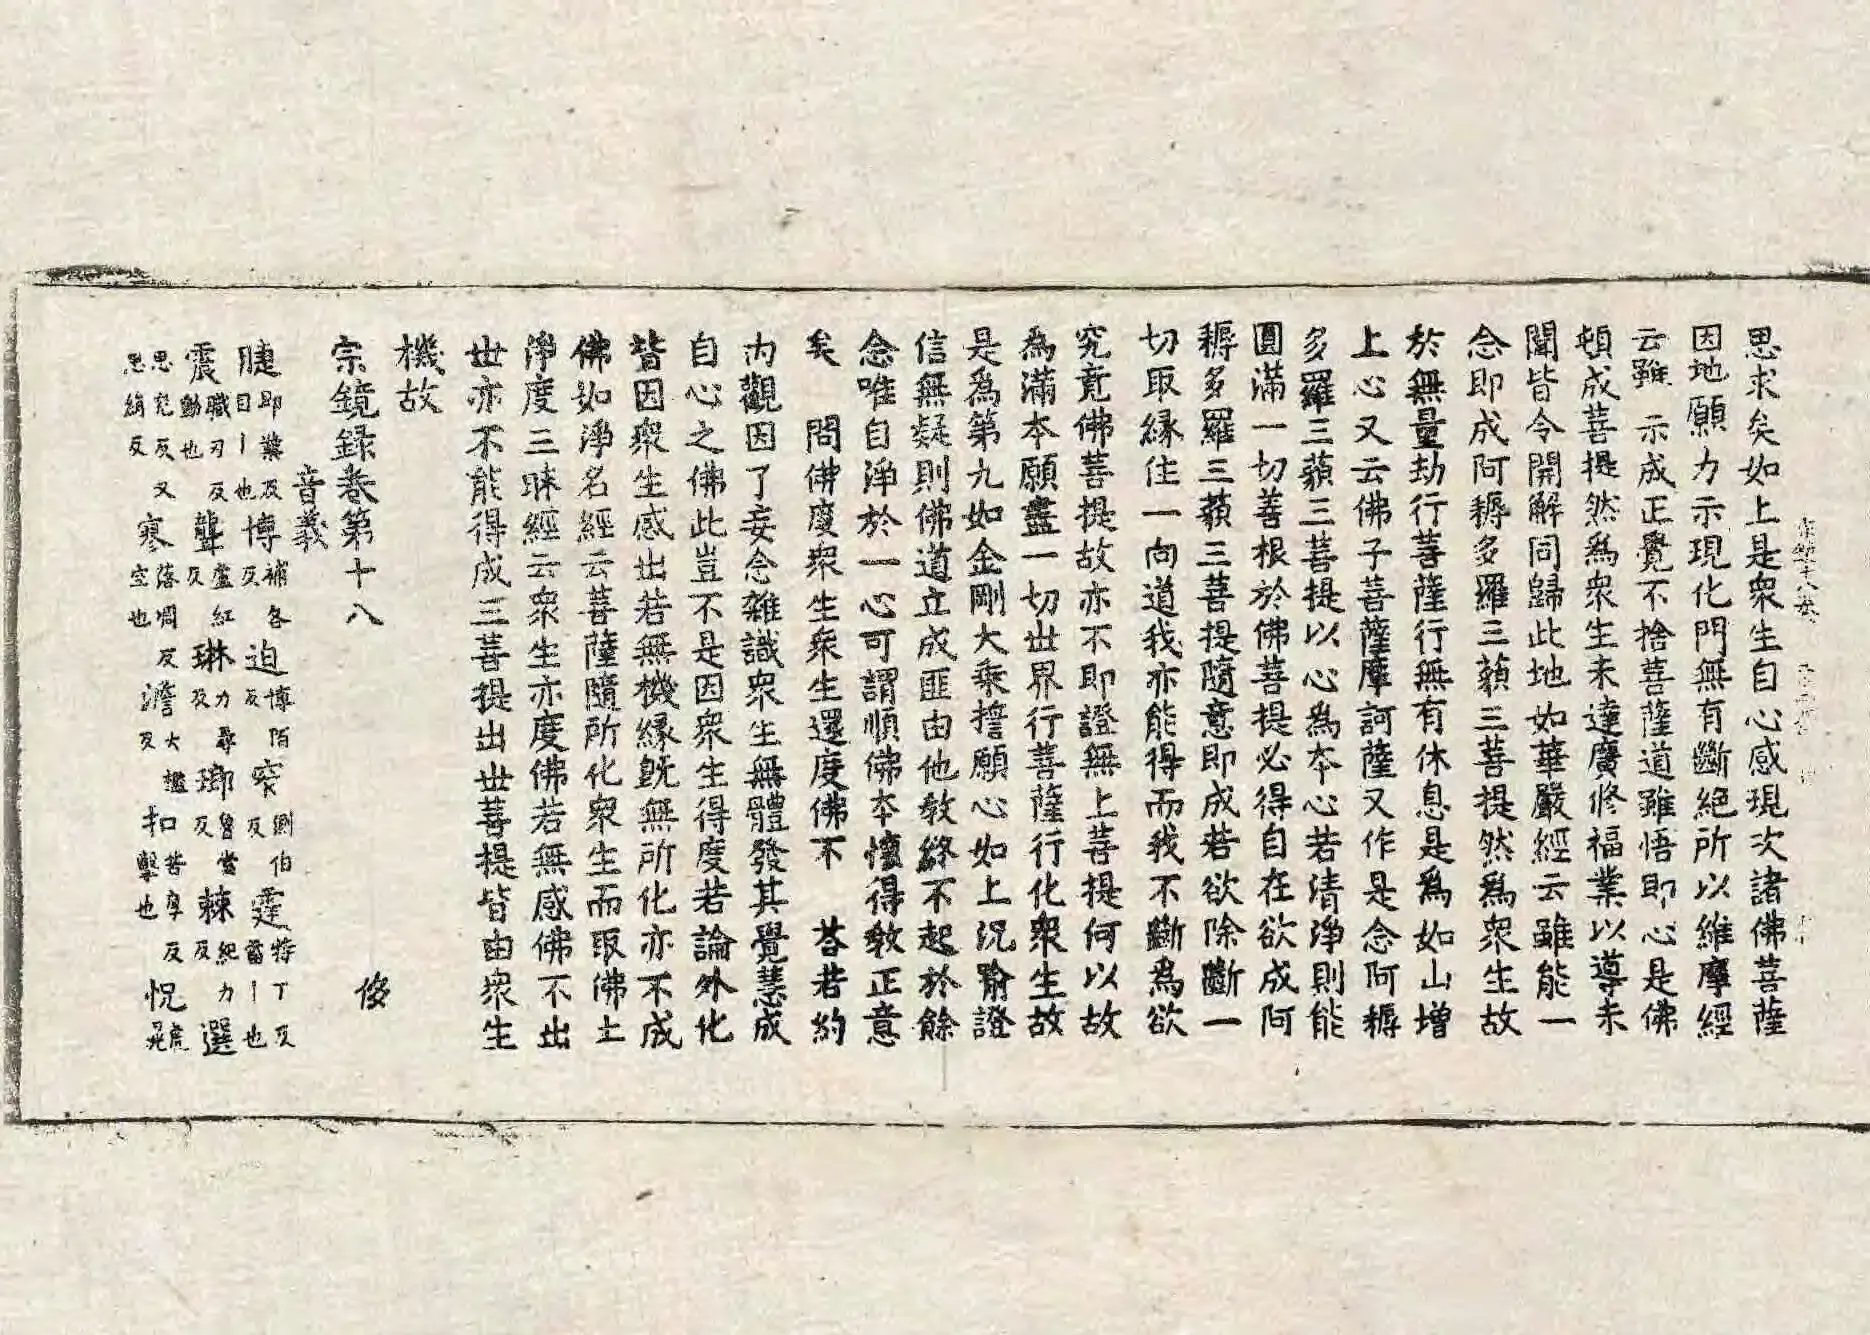 思求矣如上是衆生自心感現次諸佛菩薩
因地願力示現化門無有斷絶所以維摩經
云雖示成正覺不捨菩薩道雖悟即心是佛
頓成菩提然爲衆生未達廣修福業以導未
聞皆令開解同歸此地如華嚴經云雖能一
念即成阿耨多羅三藐三菩提然爲衆生故
於無量劫行菩薩行無有休息是爲如山增
上心又云佛子菩薩摩訶薩又作是念阿耨
多羅三藐三菩提以心爲本心若清淨則能
圓滿一切善根於佛菩提必得自在欲成阿
耨多羅三藐三菩提隨意即成若欲除斷一
切取縁住一向道我亦能得而我不斷爲欲
究竟佛菩提故亦不即證無上菩提何以故
爲滿本願盡一切世界行菩薩行化衆生故
是爲第九如金剛大乘擔願心如上況喻證
信無疑則佛道立成匪由他教終不起於餘
念唯自淨於一心可謂順佛本懷得教正意
矣　問佛度衆生衆生還度佛不　荅若約
内觀因了妄念雜識衆生無體發其覺慧成
自心之佛此豈不是因衆生得度若論外化
皆因衆生感出若無機縁旣無所化亦不成
佛如淨名經云菩薩隨所化衆生而取佛土
淨度三昧經云衆生亦度佛若無感佛不出
世亦不能得成三菩提出世菩提皆由衆生
機故
宗鏡録卷第十八　俊
音義
睫即葉反目丨也博補各反迫博陌反窄側伯反霆特丁反雷丨也
震職刃反動也聾盧紅反琳力尋反瑯魯當反棘紀力反選
思兖反又思絹反寥落凋反空也澹大濫反扣苦厚反擊也怳